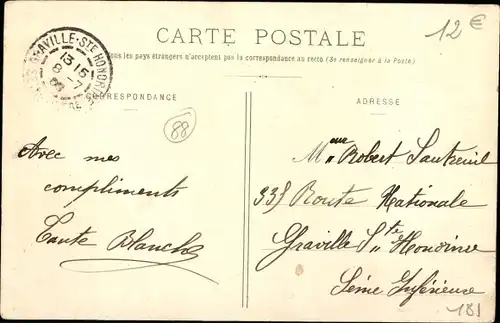 12€
CARTE POSTALE
Tous les pays étrangers n'acceptent pas la correspondance au recto (Se renseigner à la Poste)
GRAVILLE-STE HONORINE
13 15
8 -7
CORRESPONDANCE
ADRESSE
88
Avec mes
compliments
Tante Blanche
Mme Robert Sautreuil
335 Route Nationale
Graville Ste Honorine
Seine Inférieure
181